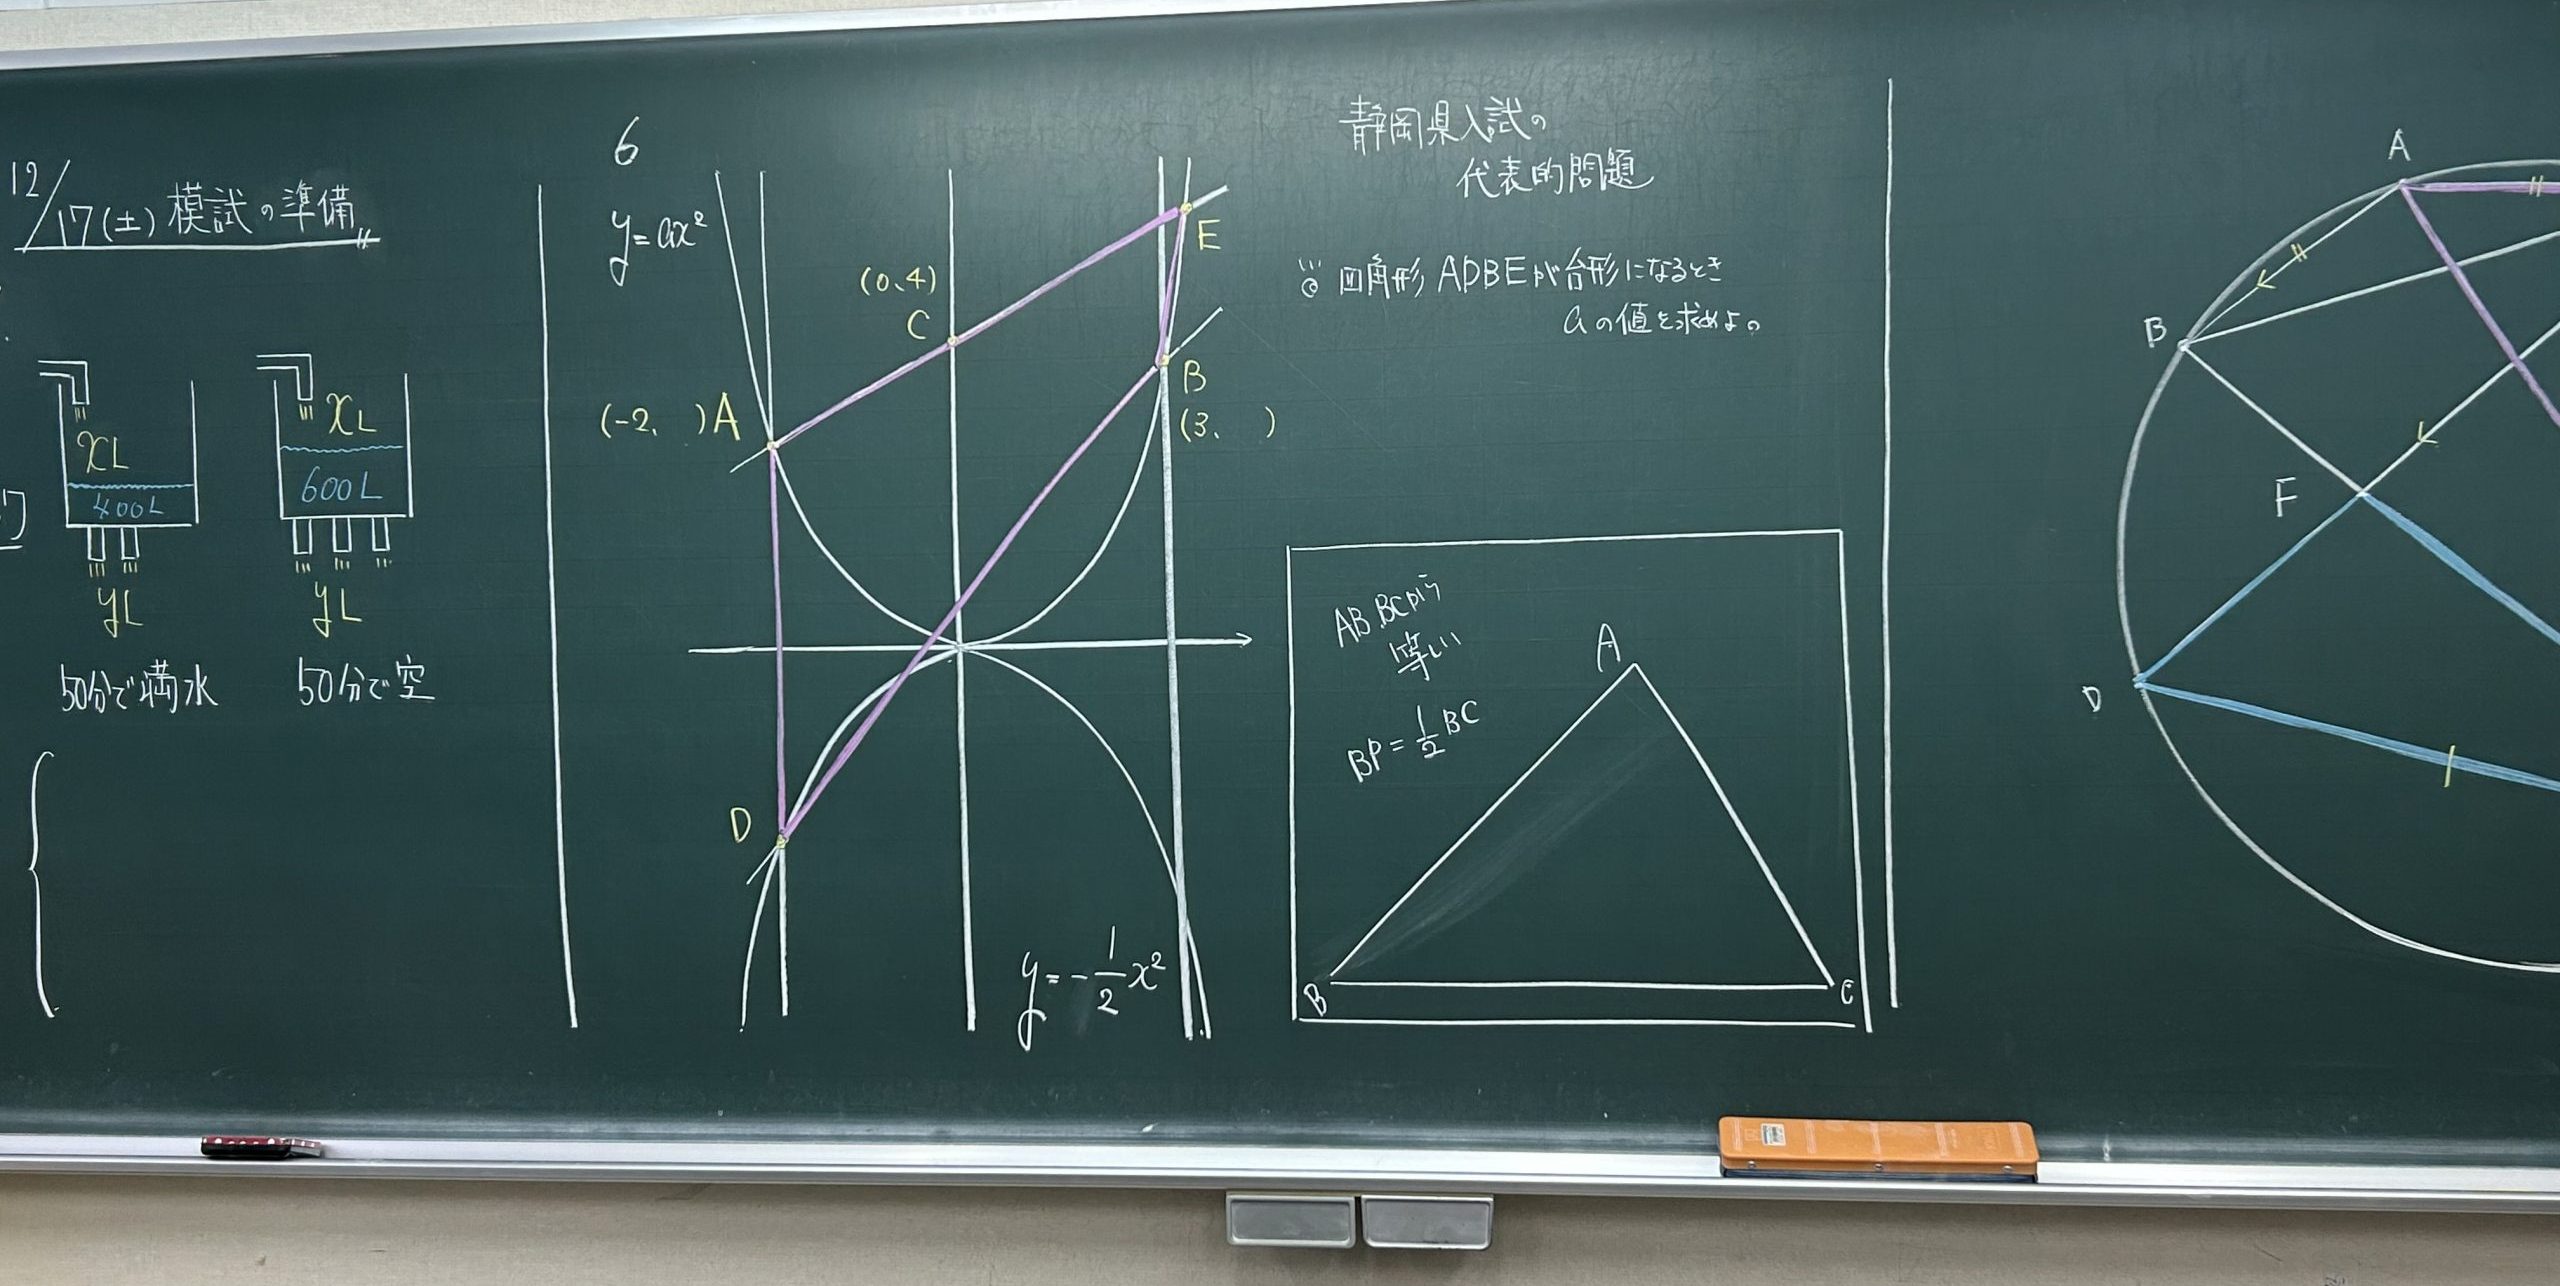 12/17(土)模試の準備
xL
400L
yL
50分で満水
xL
600L
yL
50分で空
6
y=ax²
(0、4)
C
E
(-2、 )A
B
(3、 )
D
y=-1/2x²
静岡県入試の
代表的問題
四角形ADBEが台形になるとき
aの値を求めよ。
AB、BCから
等しい
BP=1/2BC
A
B
C
A
B
F
D